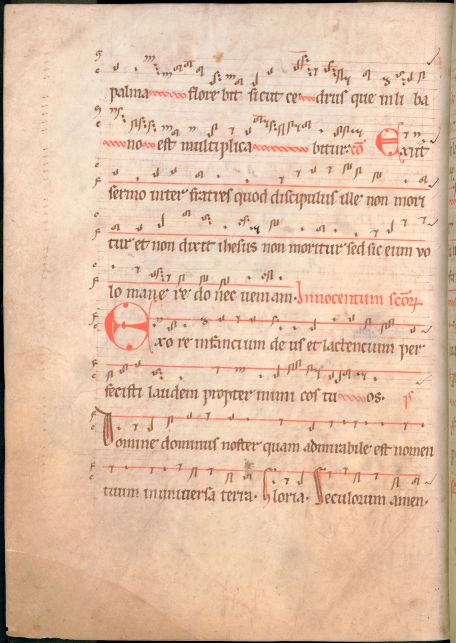 palma flore bit sicut ce drus que in li ba
no est multiplica bitur. co Exiit
sermo inter fratres quod discipulus ille non mori
tur et non dixit ihesus non moritur sed sic eum vo
lo mane re do nec veniam. Innocentum scorum
Exo re infancium de us et lactencium per
fecisti laudem propter inimi cos tu os. p
Domine dominus noster quam admirabile est nomen
tuum in universa terra. Gloria. Seculorum amen.